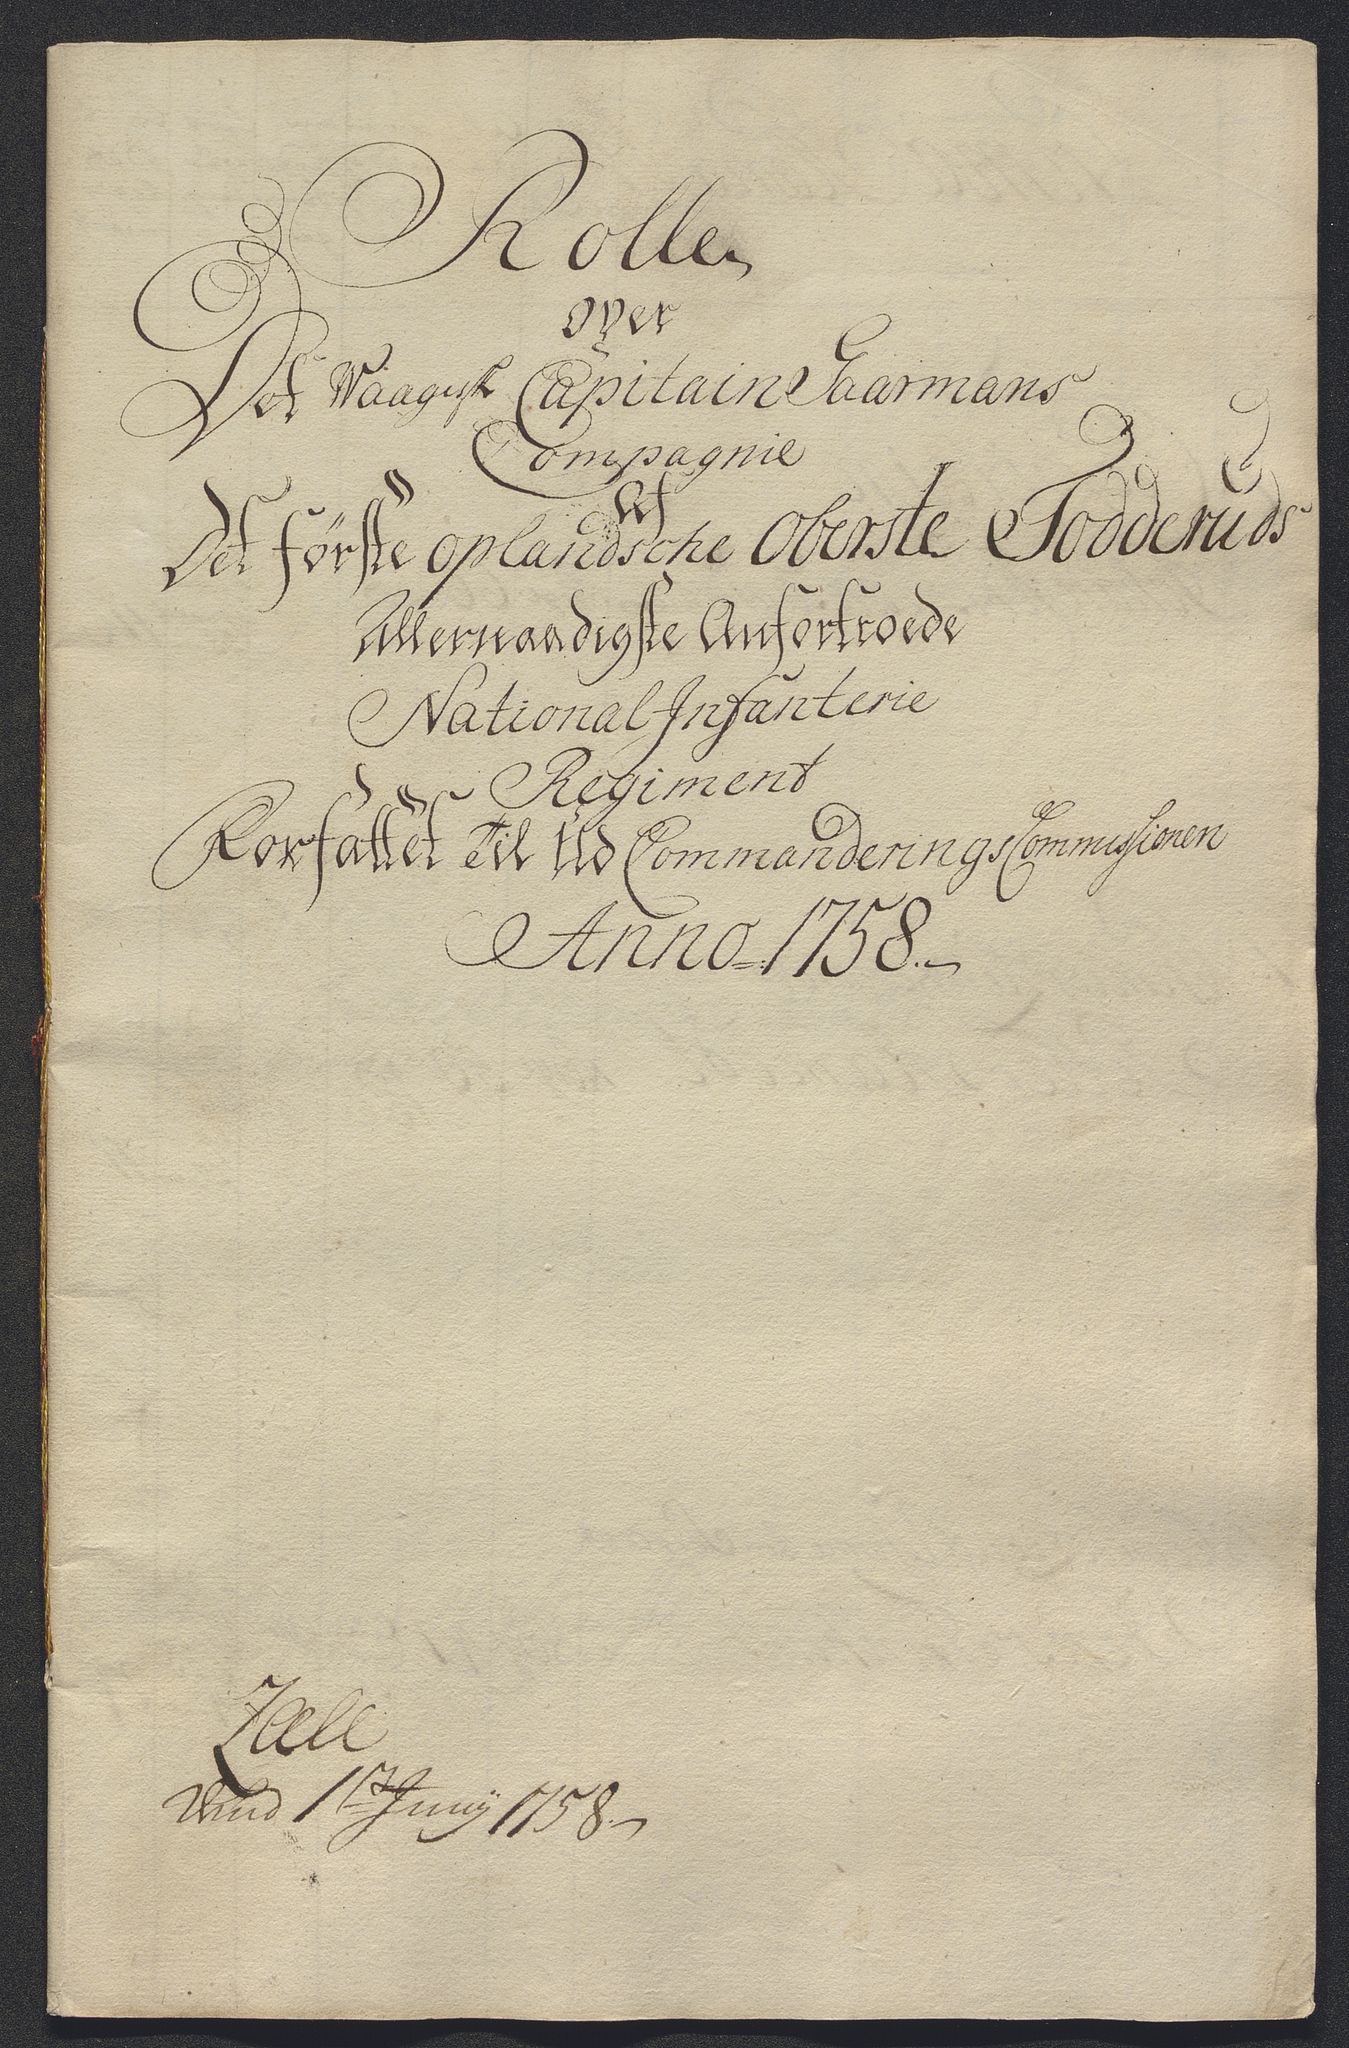 Rolle
over
Det Waagesk Capitain Gaarmans
Compagnie
Af
Det første oplandsche Oberste Todderuds
Allernaadigste Anfortroede
National Infanterie
Regiment
Forfattet Til Ud Commanderings Commissionen
Anno 1758.
1758.